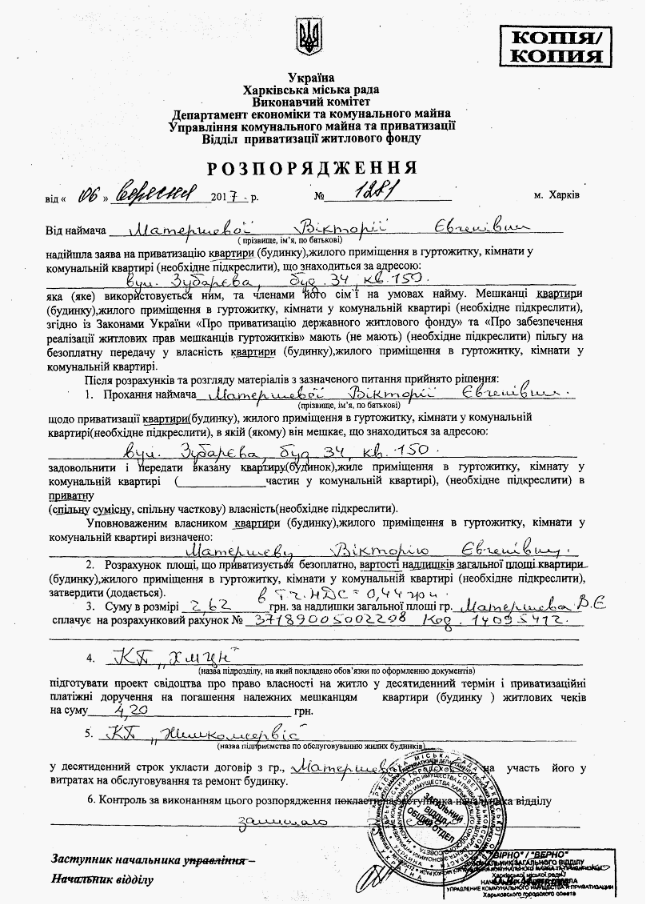 КОПІЯ/
КОПИЯ
Україна
Харківська міська рада
Виконавчий комітет
Департамент економіки та комунального майна
Управління комунального майна та приватизації
Відділ приватизації житлового фонду
РОЗПОРЯДЖЕННЯ
від « 06 » вересня 2017 р. № 1281 м. Харків
Від наймача Матершевої Вікторії Євгенівни
( прізвище, ім'я, по батькові)
надійшла заява на приватизацію квартири (будинку),жилого приміщення в гуртожитку, кімнати у
комунальній квартирі (необхідне підкреслити), що знаходиться за адресою:
вул. Зубарєва, буд. 34, кв. 150.
яка (яке) використовується ним, та членами його сім'ї на умовах найму. Мешканці квартири
(будинку),жилого приміщення в гуртожитку, кімнати у комунальній квартирі (необхідне підкреслити),
згідно із Законами України «Про приватизацію державного житлового фонду» та «Про забезпечення
реалізації житлових прав мешканців гуртожитків» мають (не мають) (необхідне підкреслити) пільгу на
безоплатну передачу у власність квартири (будинку),жилого приміщення в гуртожитку, кімнати у
комунальній квартирі.
Після розрахунків та розгляду матеріалів з зазначеного питання прийнято рішення:
1. Прохання наймача Матершевої Вікторії Євгенівни
(прізвище, ім'я, по батькові)
щодо приватизації квартири(будинку), жилого приміщення в гуртожитку, кімнати у комунальній
квартирі(необхідне підкреслити), в якій (якому) він мешкає, що знаходиться за адресою:
вул. Зубарєва, буд 34, кв. 150.
задовольнити і передати вказану квартиру(будинок),жиле приміщення в гуртожитку, кімнату у
комунальній квартирі (____________частин у комунальній квартирі), (необхідне підкреслити) в
приватну
(спільну сумісну, спільну часткову) власність(необхідне підкреслити).
Уповноваженим власником квартири (будинку),жилого приміщення в гуртожитку, кімнати у
комунальній квартирі визначено:
Матершеву Вікторію Євгенівну
2. Розрахунок площі, що приватизується безоплатно, вартості надлишків загальної площі квартири
(будинку),жилого приміщення в гуртожитку, кімнати у комунальній квартирі (необхідне підкреслити),
затвердити (додається). в т.ч. НДС = 0,44 грн.
3. Суму в розмірі 2,62 грн. за надлишки загальної площі гр. Матершева В.Є
сплачує на розрахунковий рахунок № 37189005002298 Код. 14095412.
4. КП „ХМЦН"
(назва підрозділу, на який покладено обов'язки по оформленню документів)
підготувати проект свідоцтва про право власності на житло у десятиденний термін і приватизаційні
платіжні доручення на погашення належних мешканцям квартири (будинку ) житлових чеків
на суму 4,20 грн.
5. КП „Жилкомсервіс"
(назва підприємства по обслуговуванню жилих будинків)
у десятиденний строк укласти договір з гр., Матершева на участь його у
витратах на обслуговування та ремонт будинку.
6. Контроль за виконанням цього розпорядження покласти на заступника начальника відділу
залишаю
ЗАГАЛЬНИЙ
ВІДДІЛ
ОБЩИЙ ОТДЕЛ
Заступник начальника управління –
Начальник відділу
"ВІРНО" / "ВЕРНО"
УПРАВЛЕНИЕ КОММУНАЛЬНОГО ИМУЩЕСТВА И ПРИВАТИЗАЦИИ
Харьковского городского совета